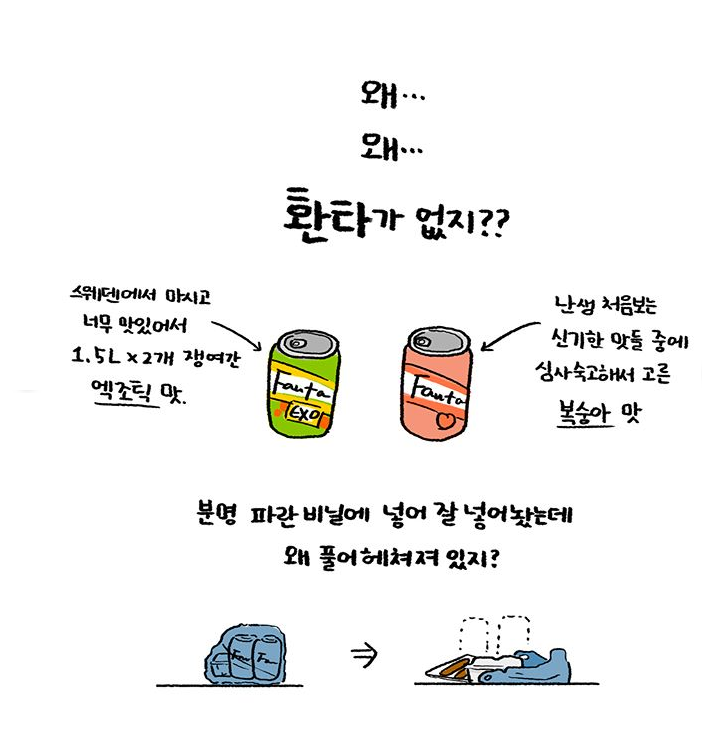 왜…
왜…
환타가 없지??
스웨덴에서 마시고
너무 맛있어서
1.5L x 2개 쟁여간
엑조틱 맛.
Fanta
EXO
난생 처음보는
신기한 맛들 중에
심사숙고해서 고른
복숭아 맛
Fanta
분명 파란 비닐에 넣어 잘 넣어놨는데
왜 풀어헤쳐져 있지?
Fan
Fa